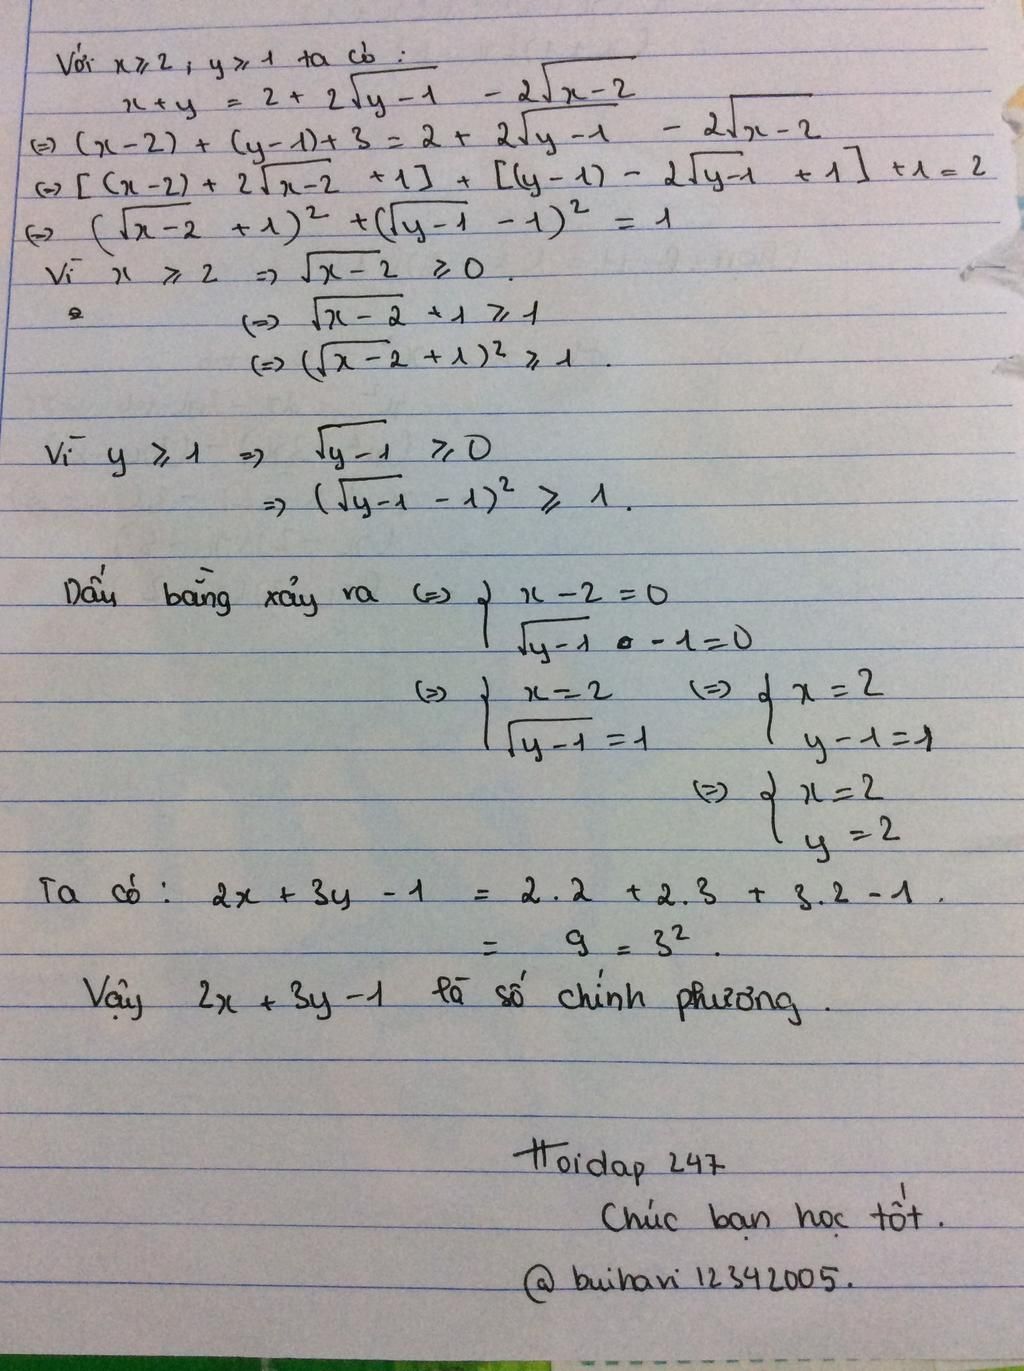 Với x ≥ 2, y ≥ 1 ta có :
x + y = 2 + 2√(y-1) - 2√(x-2)
(=) (x-2) + (y-1) + 3 = 2 + 2√(y-1) - 2√(x-2)
(=) [(x-2) + 2√(x-2) + 1] + [(y-1) - 2√(y-1) + 1] + 1 = 2
(=) (√(x-2) + 1)² + (√(y-1) - 1)² = 1
Vì x ≥ 2 => √(x-2) ≥ 0.
(=) √(x-2) + 1 ≥ 1
(=) (√(x-2) + 1)² ≥ 1.
Vì y ≥ 1 => √(y-1) ≥ 0
=> (√(y-1) - 1)² ≥ 1.
Dấu bằng xảy ra (=) { x - 2 = 0
√(y-1) - 1 = 0
(=) { x = 2 (=) { x = 2
√(y-1) = 1 y - 1 = 1
(=) { x = 2
y = 2
Ta có : 2x + 3y - 1 = 2.2 + 2.3 + 3.2 - 1.
= 9 = 3².
Vậy 2x + 3y - 1 là số chính phương.
Hoidap 247
Chúc bạn học tốt.
@ buihari 12342005.